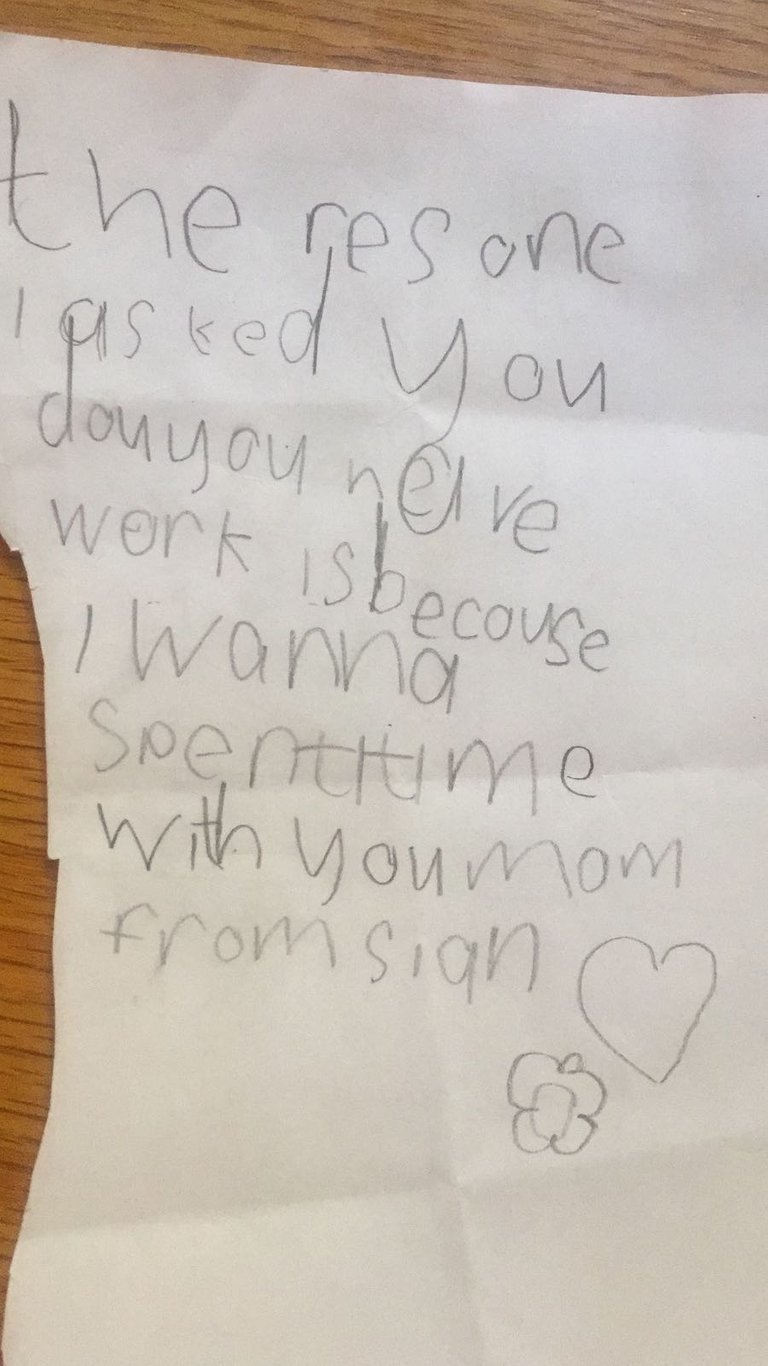 the resone
I asked you
dou you heive
work is becouse
I wanna
Spent time
with you mom
from sian